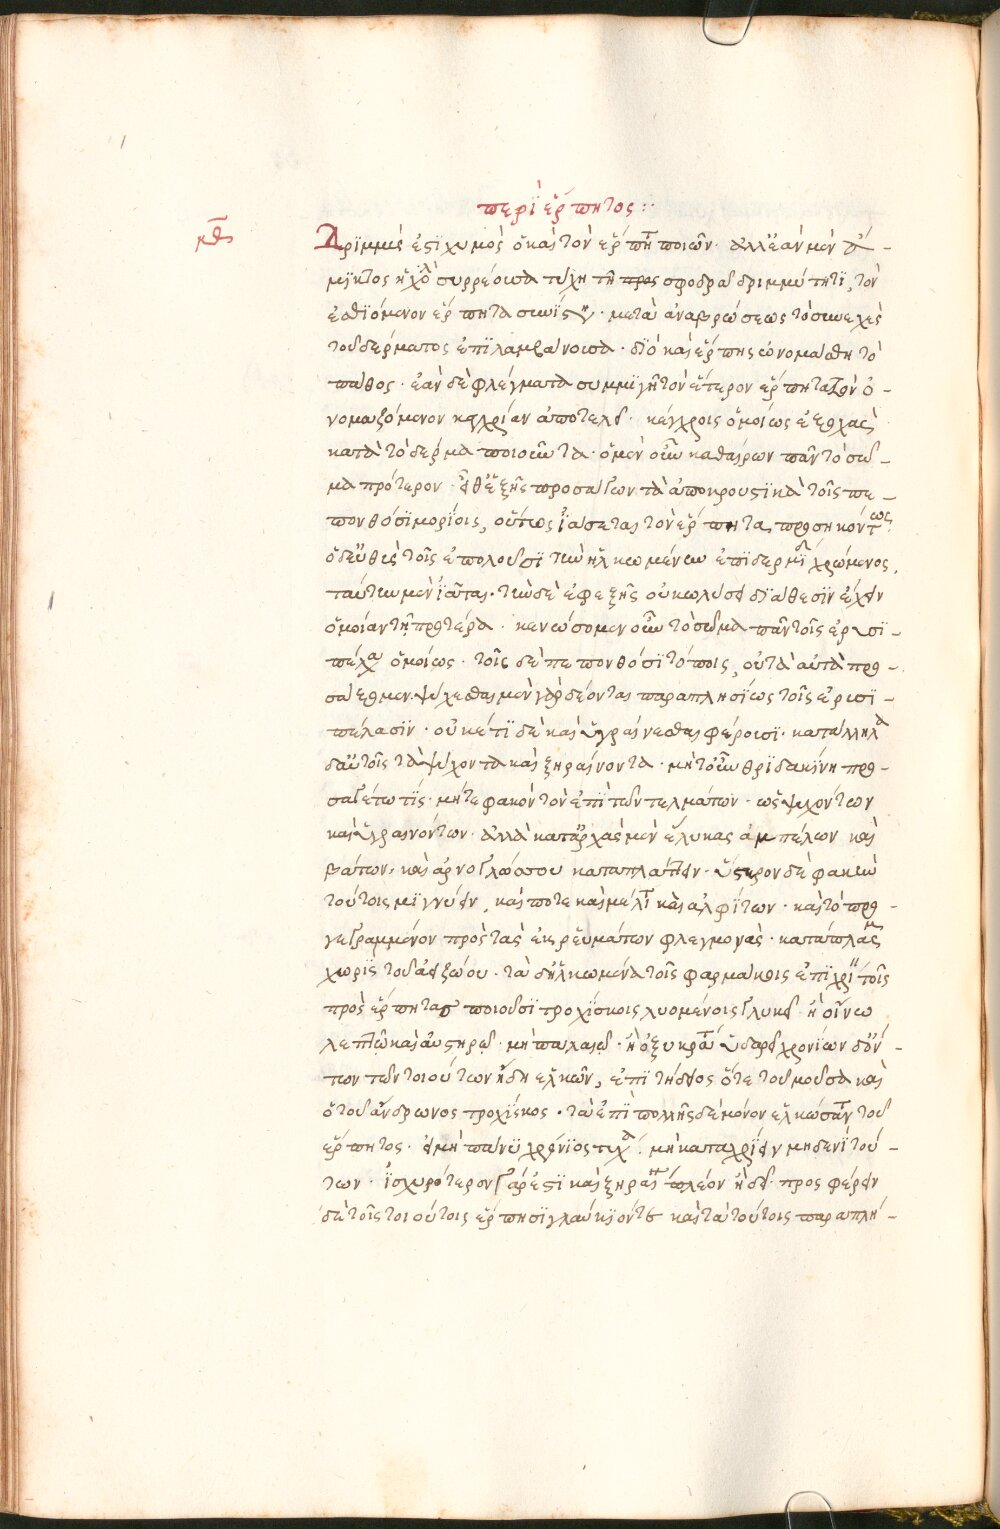 περὶ ἕρπητος :·
κθ
Δριμμύς ἐστι χυμὸς ὁ καὶ τὸν ἕρπητ ποιῶν · ἀλλ' ἐὰν μὲν ἄ-
μικτος ἡ χολ συρρέουσα τύχη τῆ προς σφοδρα δριμμύτητι, τὸν
ἐσθιόμενον ἕρπητα συνίστ · μετὰ ἀναβρώσεως τὸ συνεχὲς
τοῦ δέρματος ἐπιλαμβάνουσα · διὸ καὶ ἕρπης ὠνομάσθη τὸ
πάθος · ἐὰν δὲ φλέγματα συμμιγῆ τὸν ἕτερον ἕρπητα τὸν ὀ-
νομαζόμενον κεγχρίαν ἀποτελεῖ · κέγχροις ὁμοίως ἐξοχὰς
κατὰ τὸ δέρμα ποιοῦντα · ὁ μὲν οὖν καθαίρων πᾶν τὸ σῶ-
μα πρότερον · εἶθ' ἑξῆς προσάγων τὰ ἀποκρουστικὰ τοῖς πε-
πονθόσι μορίοις, οὕτως ἰάσεται τὸν ἕρπητα, προσηκόντως
ὁ δ' εὐθὺς τοῖς ἐπουλοῦσι τῶ ἡλκωμένω ἐπὶ δέρμ χρώμενος,
ταύτην μὲν ἰᾶται · τὴν δὲ ἐφεξῆς οὐ κωλύσει διάθεσιν ἔχειν
ὁμοίαν τῆ προτέρα · κενώσομεν οὖν τὸ σῶμα πᾶν τοῖς ἐρυσι-
πέλα ὁμοίως · τοῖς δὲ πεπονθόσι τόποις, οὐ τὰ αὐτὰ προ-
σάξομεν. ψύχεσθαι μὲν γὰρ δέονται παραπλησίως τοῖς ἐρισι-
πέλασιν · οὐκέτι δὲ καὶ ὑγραίνεσθαι φέρουσι · κατάλληλα
δ' αὐτοῖς τὰ ψύχοντα καὶ ξηραίνοντα · μήτ' οὖν θριδακίνη προ-
σαγέτω τίς · μήτε φακὸν τὸν ἐπὶ τῶν τελμάτων · ὡς ψυχόντων
καὶ ὑγραινόντων · ἀλλὰ κατ' ἀρχὰς μὲν ἕλικας ἀμπέλων καὶ
βάτων, καὶ ἀρνογλώσσου καταπλάττειν · ὕστερον δὲ φακῶ
τούτοις μιγνύειν, καί ποτε καὶ μέλιτ καὶ ἀλφίτων · καὶ τὸ προ-
γεγραμμένον πρὸς τὰς ἐκ ρεύματων φλεγμονὰς · κατάπλασμ
χωρὶς τοῦ ἀειζώου · τὰ δ' ἡλκωμένα τοῖς φαρμάκοις ἐπιχρί τοῖς
πρὸς ἕρπητας ποιοῦσι τροχίσκοις λυομένοις γλυκεῖ · ἢ οἴνω
λεπτῶ καὶ αὐστηρῶ · μὴ παλαιῶ · ἢ ὀξυκράτ ὑδαρεῖ χρονίων δ' ὄν-
των τῶν τοιούτων ἤδη ἑλκῶν, ἐπιτήδειος ὅ τε τοῦ μούσα καὶ
ὁ τοῦ ἄνδρωνος τροχίσκος · τὰ ἐπιπολῆς δὲ μόνον ἑλκώσαντ τοῦ
ἕρπητος · εἰ μὴ πάνυ χρόνιος τύχ · μὴ καταχρίειν μηδενὶ τού-
των · ἰσχυρότερον γάρ ἐστι καὶ ξηραῖ πλέον ἢ δεῖ · προσφέρειν
δὲ τοῖς τοιούτοις ἕρπησι γλαύκιόν τε καὶ τὰ τούτοις παραπλή-